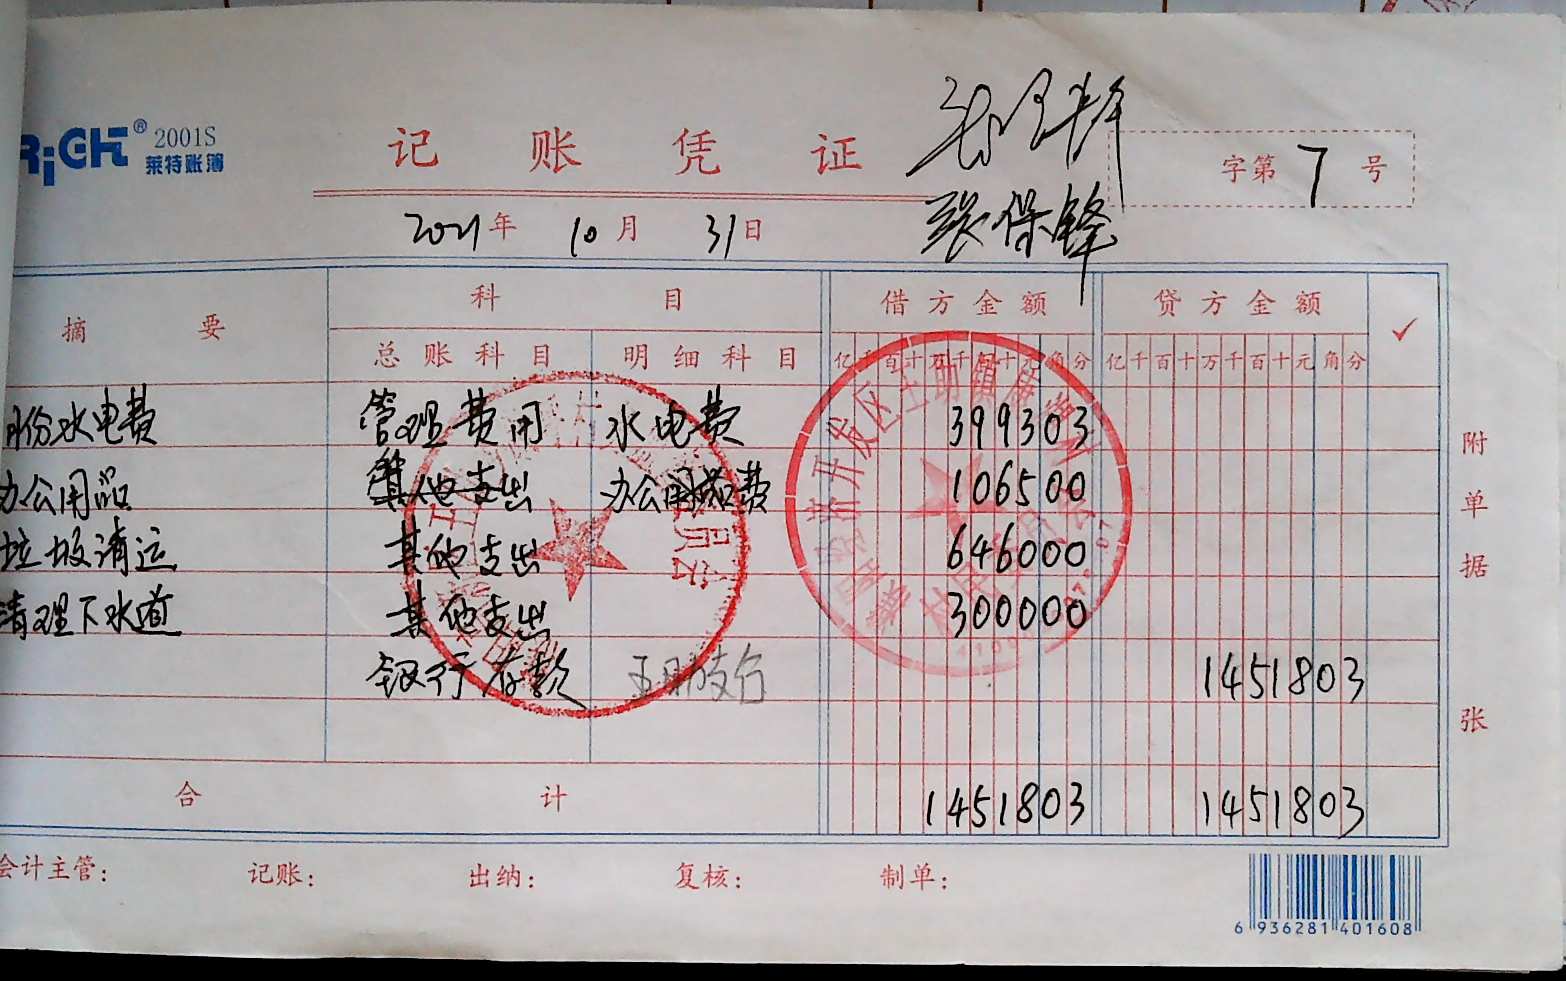 RiGHT® 2001S
莱特账簿
记账凭证
字第 7 号
张保锋
2021年 10月 31日
摘要 科目 借方金额 贷方金额 ✓
总账科目 明细科目 亿千百十万千百十元角分 亿千百十万千百十元角分
月份水电费 管理费用 水电费 399303
办公用品 其他支出 办公用品费 106500
垃圾清运 其他支出 646000
清理下水道 其他支出 300000
银行存款 支行 1451803
合计 1451803 1451803
附单据 张
会计主管: 记账: 出纳: 复核: 制单:
6 936281 401608